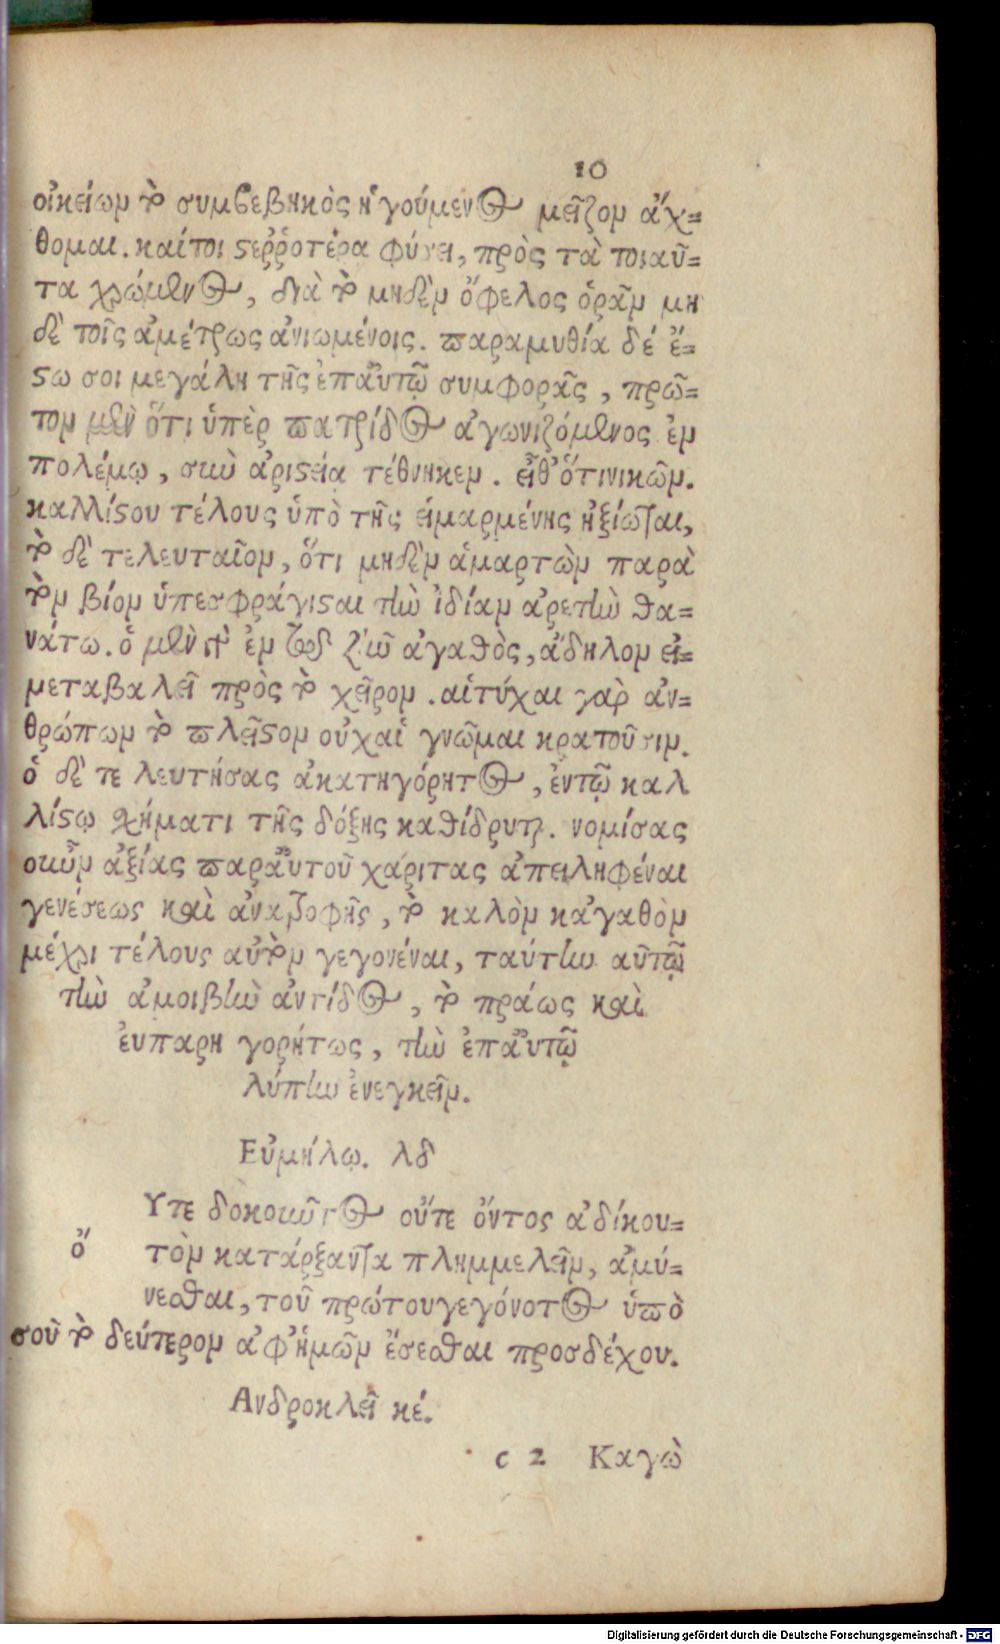 10
οἰκείων τὸ συμβεβηκὸς ἡγούμενος μεῖζον ἄχ=
θομαι. καίτοι στερροτέρα φύσει, πρὸς τὰ τοιαῦ=
τα χρώμενος, διὰ τὸ μηδὲν ὄφελος ὁρᾶν μη
δὲ τοῖς ἀμέτρως ἀνιωμένοις. παραμυθία δέ ἔ=
στω σοι μεγάλη τῆς ἐπἀυτῷ συμφορᾶς, πρῶ=
τον μὲν ὅτι ὑπὲρ πατρίδος ἀγωνιζόμενος ἐν
πολέμῳ, σὺν ἀριστεία τέθνηκεν. εἶθ' ὅτινικῶν.
καλλίστου τέλους ὑπὸ τῆς εἱμαρμένης ἠξίωται,
τὸ δὲ τελευταῖον, ὅτι μηδὲν ἁμαρτὼν παρὰ
τὸν βίον ὑπεσφράγισται τὴν ἰδίαν ἀρετὴν θα=
νάτω. ὁ μὲν γὰρ ἐν τῷ ζῆν ἀγαθὸς, ἄδηλον εἰ=
μεταβαλεῖ πρὸς τὸ χεῖρον. αἱτύχαι γὰρ ἀν=
θρώπων τὸ πλεῖστον οὐχαἱ γνῶμαι κρατοῦσιν.
ὁ δὲ τε λευτήσας ἀκατηγόρητος, ἐντῷ καλ
λίστῳ σχήματι τῆς δόξης καθίδρυται. νομίσας
οὖν ἀξίας παρἀυτοῦ χάριτας ἀπειληφέναι
γενέσεως καὶ ἀνατροφῆς, τὸ καλὸν κἀγαθὸν
μέχρι τέλους αὐτὸν γεγονέναι, ταύτην αὐτῷ
τὴν ἀμοιβὴν ἀντίδος, τὸ πράως καὶ
ἐυπαρη γορήτως, τὴν ἐπἀυτῷ
λύπην ἐνεγκεῖν.
Εὐμήλῳ. λδ
ὄ Υτε δοκοῦντος οὔτε ὄντος ἀδίκου=
τὸν κατάρξαντα πλημμελεῖν, ἀμύ=
νεσθαι, τοῦ πρώτουγεγόνοτος ὑπὸ
σοῦ τὸ δεύτερον ἀφ'ἡμῶν ἔσεσθαι προσδέχου.
Ανδροκλεῖ κέ.
c 2 Καγὼ
Digitalisierung gefördert durch die Deutsche Forschungsgemeinschaft - DFG